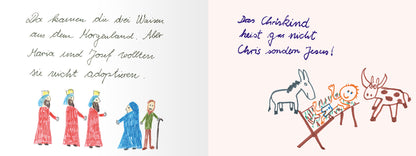 Da kamen du drei Waisen
aus dem Morgenland. Aber
Maria und Josef wollten
sie nicht adoptieren.
Das Chriskind
heist gar nicht
Chris sondern Jesus!